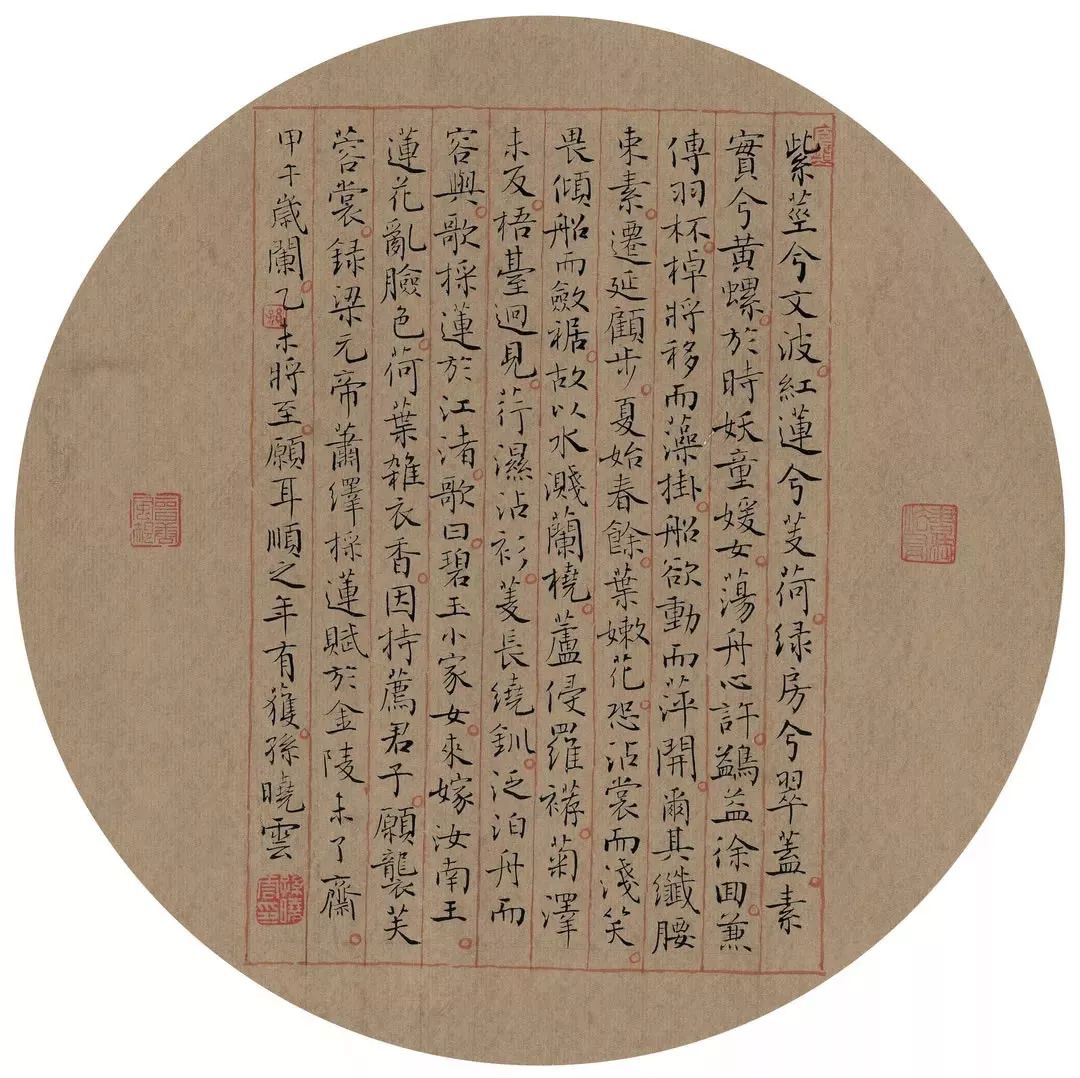 紫莖兮文波紅蓮兮芰荷緑房兮翠蓋素
實兮黃螺於時妖童媛女蕩舟心許鷁首徐回兼
傳羽杯棹將移而藻掛船欲動而萍開爾其纖腰
束素遷延顧步夏始春餘葉嫩花恐沾裳而淺笑
畏傾船而斂裾故以水濺蘭橈蘆侵羅䙖菊澤
未反梧臺迥見荇濕沾衫菱長繞釧泛泊舟而
容與歌採蓮於江渚歌曰碧玉小家女來嫁汝南王
蓮花亂臉色荷葉雜衣香因持薦君子願襲芙
蓉裳録梁元帝蕭繹採蓮賦於金陵未了齋
甲午歲闌乙未將至願耳順之年有獲孫曉雲